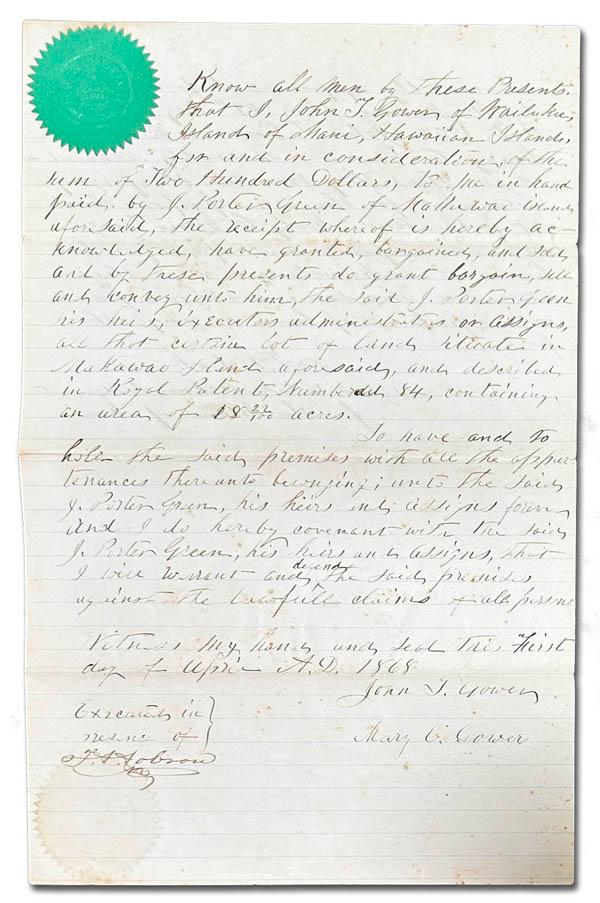 Know all Men by these Presents.
that I, John T. Gower of Wailuku,
Island of Maui, Hawaiian Islands,
for and in consideration, of the
sum of Two Hundred Dollars, to me in hand
paid by J. Porter Green of Makawao island
aforesaid, the receipt whereof is hereby ac-
knowledged, have granted, bargained, and sold
and by these presents do grant bargain, sell
and convey unto him, the said J. Porter Green
his heirs, executors administrators or assigns,
all that certain lot of land situate in
Makawao Island aforesaid, and described
in Royal Patent, Number 84, containing
an area of 18 22/100 acres.
To have and to
hold the said premises with all the appur
tenances thereunto belonging; unto the said
J. Porter Green, his heirs and assigns forever
And I do hereby covenant with the said
J. Porter Green, his heirs and assigns, that
I will warrant and defend the said premises
against the lawfull claims of all persons
Witness my hand and seal this First
day of April A.D. 1868
John T. Gower
Executed in
presence of
Mary C. Gower